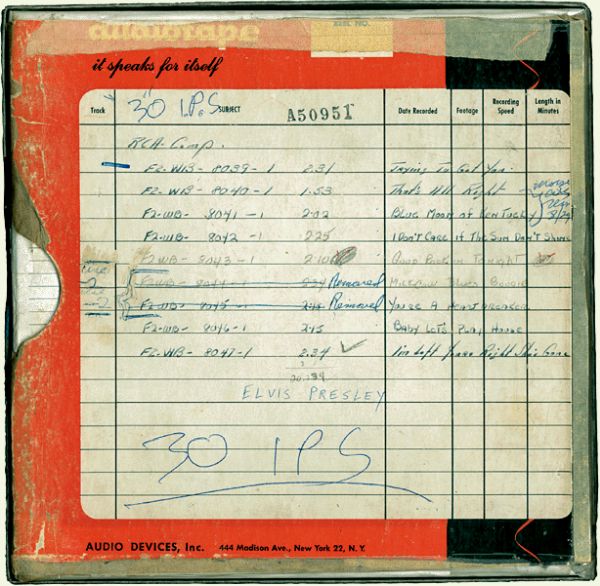 audiotape
REEL NO.
it speaks for itself
Track 30 I.P.S SUBJECT A50951 Date Recorded Footage Recording Speed Length in Minutes
RCA-Comp.
F2-WB-8039-1 2.31 Trying To Get You
F2-WB-8040-1 1.53 That's All Right
F2-WB-8041-1 2:02 Blue Moon of Kentucky
F2-WB-8042-1 2:25 I Don't Care if The Sun Don't Shine
F2-WB-8043-1 2:10 Good Rockin Tonight
F2-WB-8044-1 Removed Milkcow Blues Boogie
F2-WB-8045-1 Removed You're A Heartbreaker
F2-WB-8046-1 2:15 Baby Let's Play House
F2-WB-8047-1 2.34 ✓ I'm Left Youre Right She's Gone
ELVIS PRESLEY
30 IPS
AUDIO DEVICES, Inc. 444 Madison Ave., New York 22, N. Y.